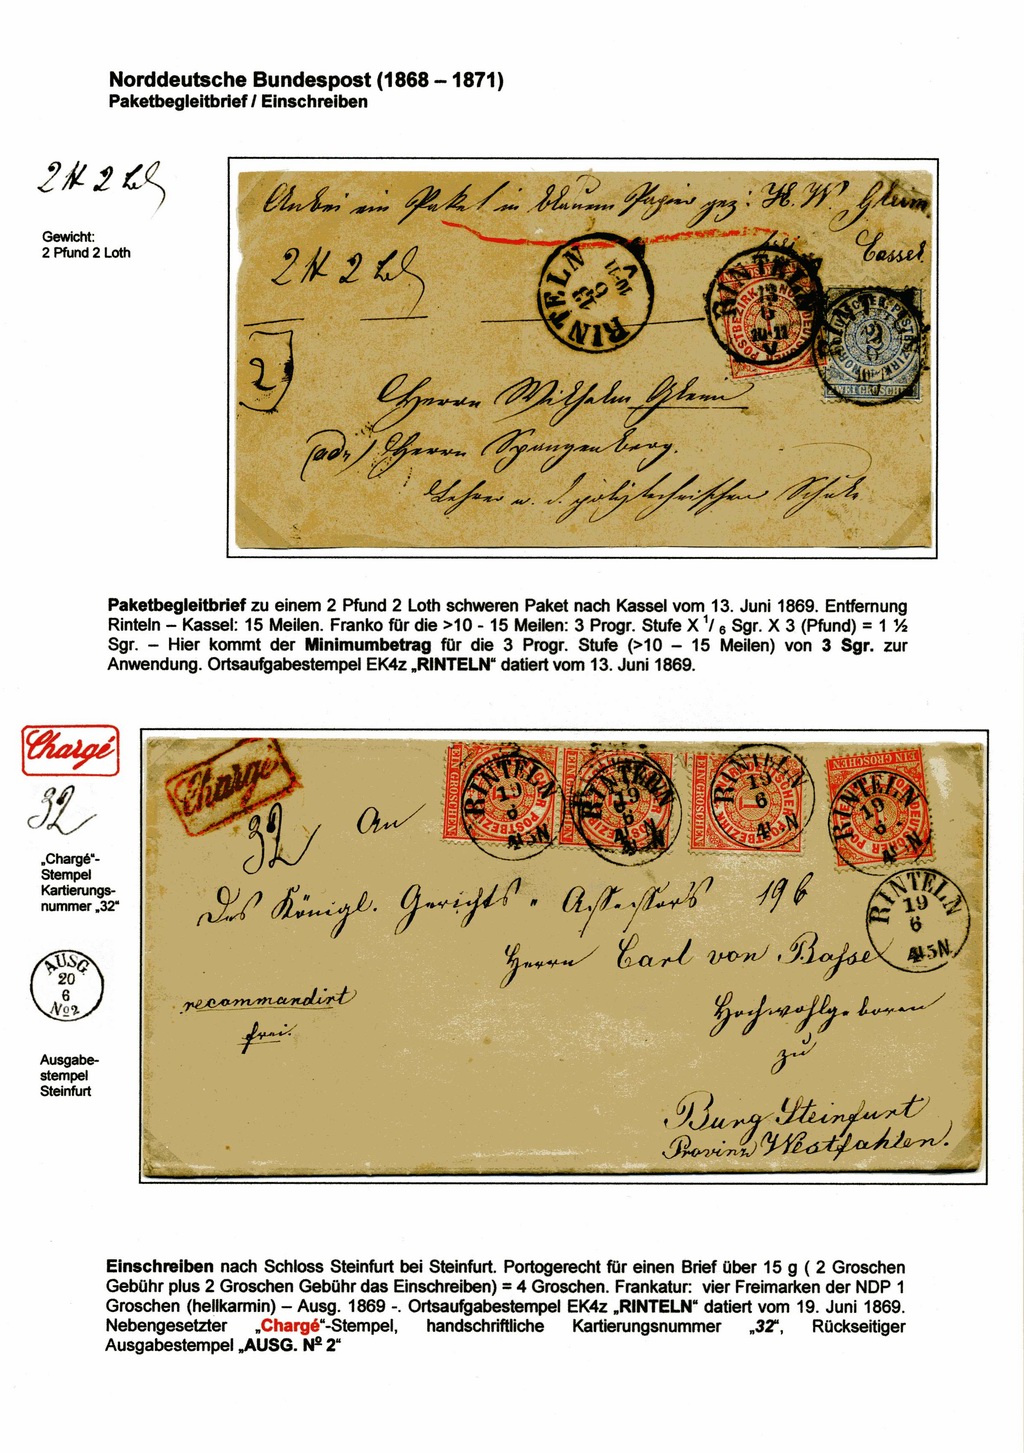 Norddeutsche Bundespost (1868 – 1871)
Paketbegleitbrief / Einschreiben
Gewicht:
2 Pfund 2 Loth
Anbei ein Paket in blauem Papier gez: H. W. Gleim
bei Cassel
2
RINTELN
13
6
10-11
V
RINTELN
13
6
10-11
V
NORDDEUTSCHER POSTBEZIRK
ZWEI GROSCHEN
2
Herrn Wilhelm Gleim
(adr.) Herrn Spangenberg.
Lehrer a. d. polytechnischen Schule
Paketbegleitbrief zu einem 2 Pfund 2 Loth schweren Paket nach Kassel vom 13. Juni 1869. Entfernung
Rinteln – Kassel: 15 Meilen. Franko für die >10 - 15 Meilen: 3 Progr. Stufe X 1/6 Sgr. X 3 (Pfund) = 1 ½
Sgr. – Hier kommt der Minimumbetrag für die 3 Progr. Stufe (>10 – 15 Meilen) von 3 Sgr. zur
Anwendung. Ortsaufgabestempel EK4z „RINTELN“ datiert vom 13. Juni 1869.
Chargé
32
„Chargé“-
Stempel
Kartierungs-
nummer „32“
AUSG.
20
6
No 2
Ausgabe-
stempel
Steinfurt
Chargé
32
An
RINTELN
19
6
4-5N
RINTELN
19
6
4-5N
RINTELN
19
6
4-5N
RINTELN
19
6
4-5N
RINTELN
19
6
4-5N
EIN GROSCHEN
Des Königl. Gerichts-Assessors 196
Herrn Carl von Basse
recommandirt
frei.
Hochwohlgeboren
zu
Burg Steinfurt
Provinz Westfahlen.
Einschreiben nach Schloss Steinfurt bei Steinfurt. Portogerecht für einen Brief über 15 g ( 2 Groschen
Gebühr plus 2 Groschen Gebühr das Einschreiben) = 4 Groschen. Frankatur: vier Freimarken der NDP 1
Groschen (hellkarmin) – Ausg. 1869 -. Ortsaufgabestempel EK4z „RINTELN“ datiert vom 19. Juni 1869.
Nebengesetzter „Chargé“-Stempel, handschriftliche Kartierungsnummer „32“, Rückseitiger
Ausgabestempel „AUSG. No 2“